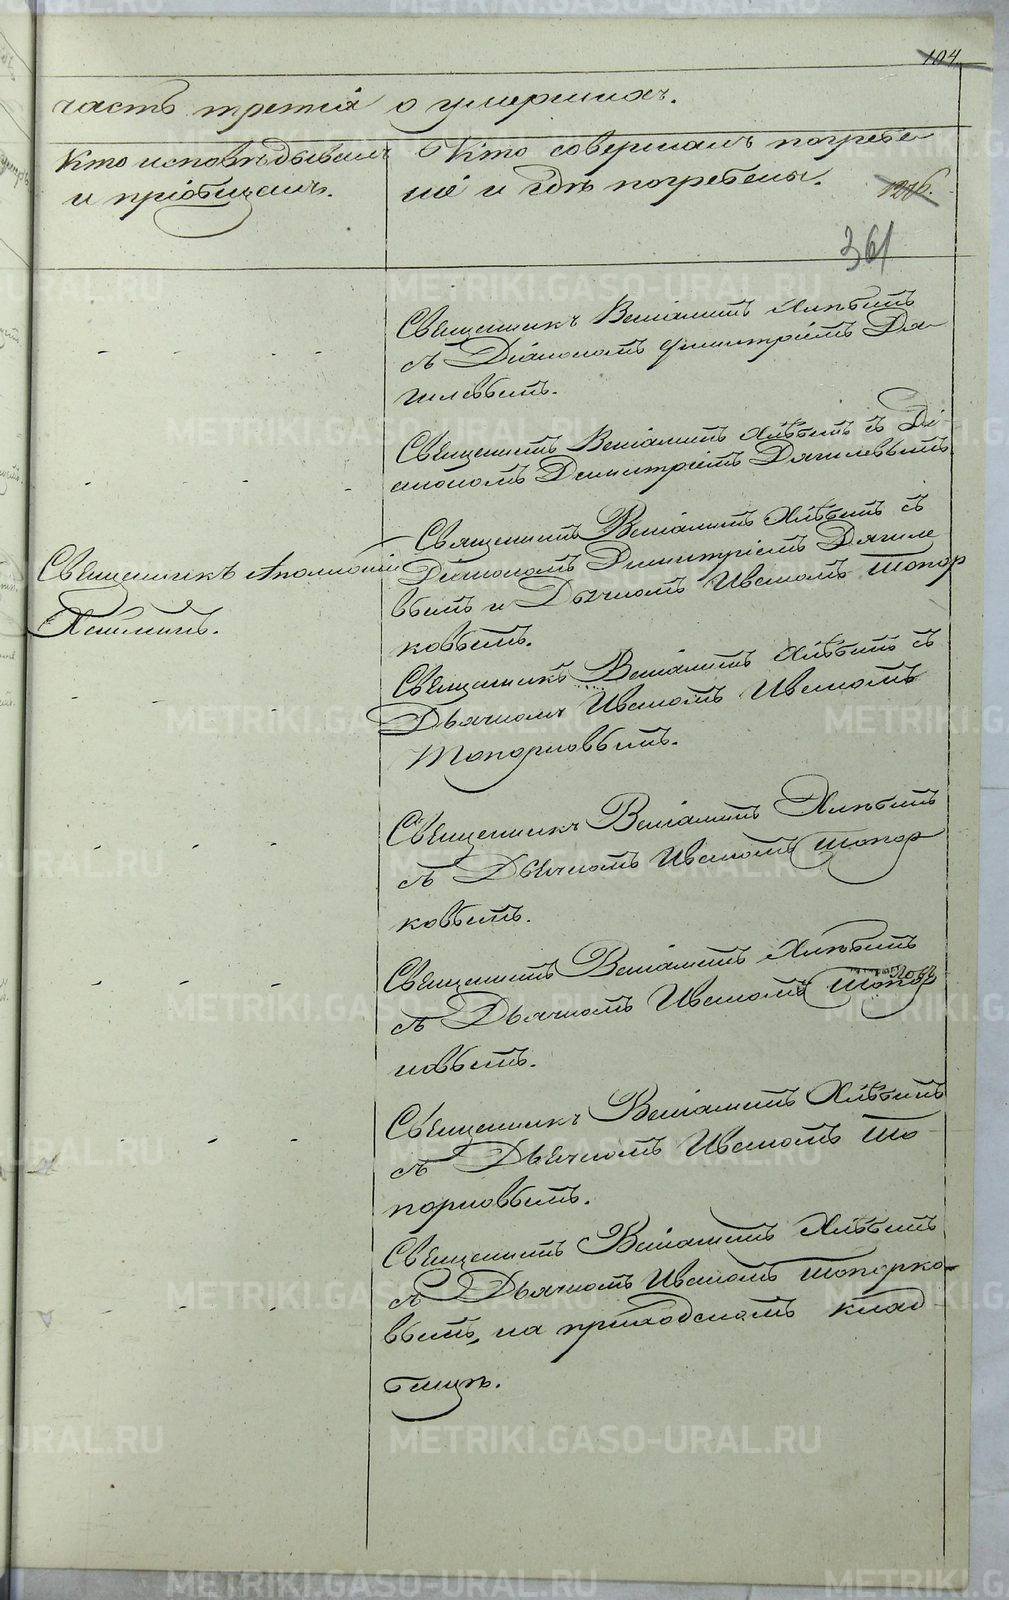 104
часть третія о умершихъ.
Кто исповѣдывалъ
и пріобщалъ.
Кто совершалъ погребе
ніе и гдѣ погребены.
361
Священникъ Веніаминъ Хлѣбинъ
съ Діакономъ Димитріемъ Дя
гилевымъ.
Священникъ Веніаминъ Хлѣбинъ съ Ді
акономъ Димитріемъ Дягилевымъ
Священникъ Веніаминъ Хлѣбинъ съ
Діакономъ Димитріемъ Дягиле
вымъ и Дьячкомъ Иваномъ Топор
ковымъ.
Священникъ Аполлоній
Священникъ Веніаминъ Хлѣбинъ съ
Дьячкомъ Иваномъ Иваномъ
Топорковымъ.
Священникъ Веніаминъ Хлѣбинъ
съ Дьячкомъ Иваномъ Топор
ковымъ.
Священникъ Веніаминъ Хлѣбинъ
съ Дьячкомъ Иваномъ Топор
ковымъ.
Священникъ Веніаминъ Хлѣбинъ
съ Дьячкомъ Иваномъ То
порковымъ.
Священникъ Веніаминъ Хлѣбинъ
съ Дьячкомъ Иваномъ Топорко-
вымъ, на приходскомъ клад
бищѣ.
METRIKI.GASO-URAL.RU